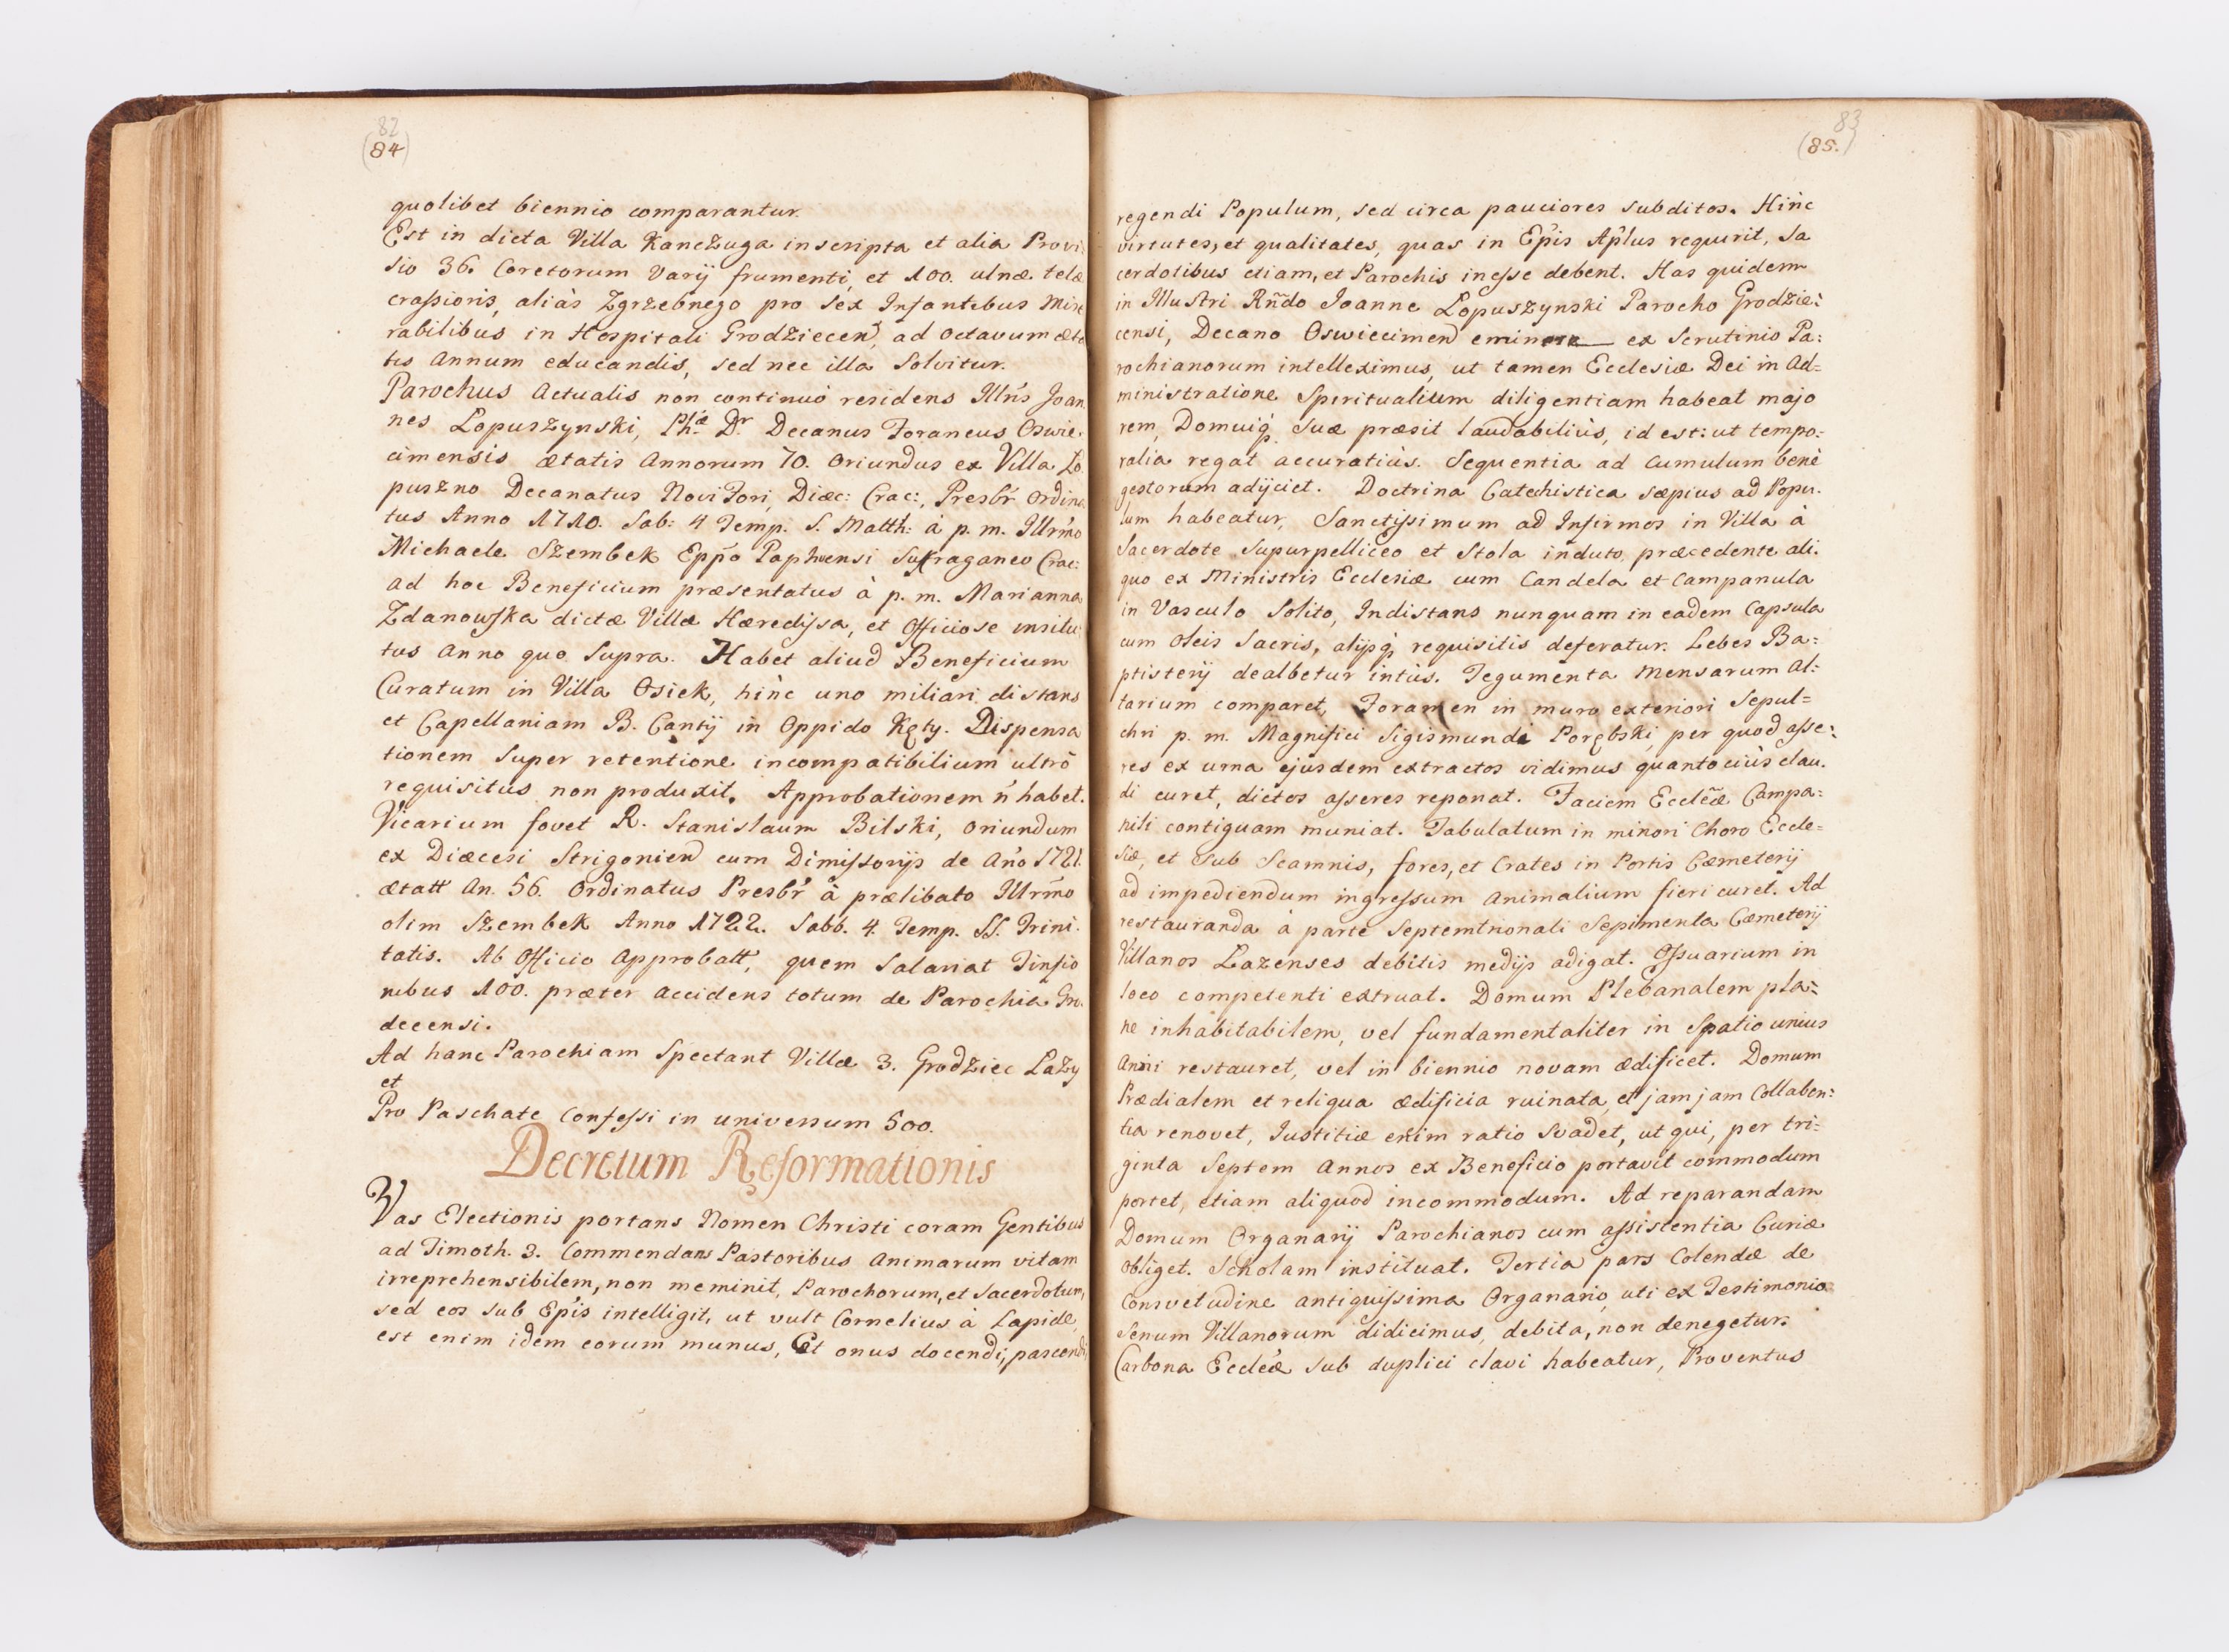 82
(84)
quolibet biennio comparantur.
Est in dicta Villa Kanczuga inscripta et alia Provi:
sio 36. Coretorum varij frumenti, et 100. ulnæ telæ
crassioris, aliàs Zgrzebnego pro sex Infantibus mise
rabilibus in Hospitali Grodziecen, ad octavum æta
tis annum educandis, sed nec illa solvitur.
Parochus actualis non continuò residens Illris Joan
nes Lopuszynski, Phæ Dr Decanus Foraneus Oswie:
cimensis ætatis annorum 70. oriundus ex Villa Lo
puszno Decanatus Novi Fori, Diæc: Crac:, Presbr ordina
tus Anno 1710. Sab: 4 Temp. S. Matth: à p. m. Illrmo
Michaele Szembek Eppo Paphensi Suffraganeo Crac:
ad hoc Beneficium præsentatus à p. m. Marianna
Zdanowska dictæ Villæ Hæredissa, et officiose institu
tus anno quo supra. Habet aliud Beneficium
Curatum in Villa Osiek, hinc uno miliari distans
et Capellaniam B. Cantij in Oppido Kęty. Dispensa
tionem super retentione incompatibilium ultrò
requisitus non produxit. Approbationem n̄ habet.
Vicarium fovet R. Stanislaum Bilski, oriundum
ex Diæcesi Strigonien cum Dimissorijs de Año 1721.
ætatt an. 56. ordinatus Presbr à prælibato Illrmo
olim Szembek Anno 1722. Sabb. 4. Temp. SS. Trini:
tatis. Ab officio approbatt, quem salariat Tinfio
nibus 100. præter accidens totum de Parochia Gro:
decensi.
Ad hanc Parochiam spectant Villæ 3. Grodziec Lazy
et
Pro Paschate confessi in universum 500.
Decretum Reformationis
Vas Electionis portans Nomen Christi coram Gentibus
ad Timoth. 3. Commendans Pastoribus animarum vitam
irreprehensibilem, non meminit, Parochorum, et Sacerdotum,
sed eos sub Epis intelligit, ut vult Cornelius à Lapide,
est enim idem eorum munus, Et onus docendi, pascendi,
83
(85.)
regendi Populum, sed circa pauciores subditos. Hinc
virtutes, et qualitates, quas in Epis Aplus requirit, Sa
cerdotibus etiam, et Parochis inesse debent. Has quidem
in Illustri Rndo Joanne Lopuszynski Parocho Grodzie:
censi, Decano Oswiecimen ex Scrutinio Pa:
rochianorum intelleximus, ut tamen Ecclesiæ Dei in ad=
ministratione Spiritualium diligentiam habeat majo
rem, Domuiq́ suæ præsit laudabiliùs, id est: ut tempo:
ralia regat accuratiùs. Sequentia ad cumulum benè
gestorum adijciet. Doctrina Catechistica sæpius ad Popu:
lum habeatur, Sanctissimum ad Infirmos in Villa à
Sacerdote supurpelliceo et stola induto, præcedente ali:
quo ex Ministris Ecclesiæ cum candela et campanula
in vasculo solito, Indistans nunquam in eadem capsula
cum oleis sacris, alijsq́ requisitis deferatur. Lebes Ba:
ptisterij dealbetur intùs. Tegumenta mensarum al:
tarium comparet, Foramen in muro exteriori sepul=
chri p. m. Magnifici Sigismundi Porębski, per quod asse:
res ex urna ejusdem extractos vidimus quantociùs clau:
di curet, dictos asseres reponat. Faciem Eccleæ Campa:
nili contiguam muniat. Tabulatum in minori choro Eccle=
siæ, et sub scamnis, fores, et crates in Portis Cæmeterij
ad impediendum ingressum animalium fieri curet. Ad
restauranda à parte septemtrionali sepimenta Cæmeterij
Villanos Lazenses debitis medijs adigat. Ossuarium in
loco competenti extruat. Domum Plebanalem pla=
ne inhabitabilem, vel fundamentaliter in spatio unius
anni restauret, vel in biennio novam ædificet. Domum
Prædialem et reliqua ædificia ruinata, et jam jam collaben:
tia renovet, Iustitiæ enim ratio svadet, ut qui, per tri=
ginta septem annos ex Beneficio portavit commodum
portet, etiam aliquod incommodum. Ad reparandam
Domum Organarij Parochianos cum assistentia Curiæ
obliget. Scholam instituat. Tertia pars Colendæ de
consvetudine antiquissima Organario, uti ex Testimonio
senum Villanorum didicimus, debita, non denegetur.
Carbona Eccleæ sub duplici clavi habeatur, Proventus